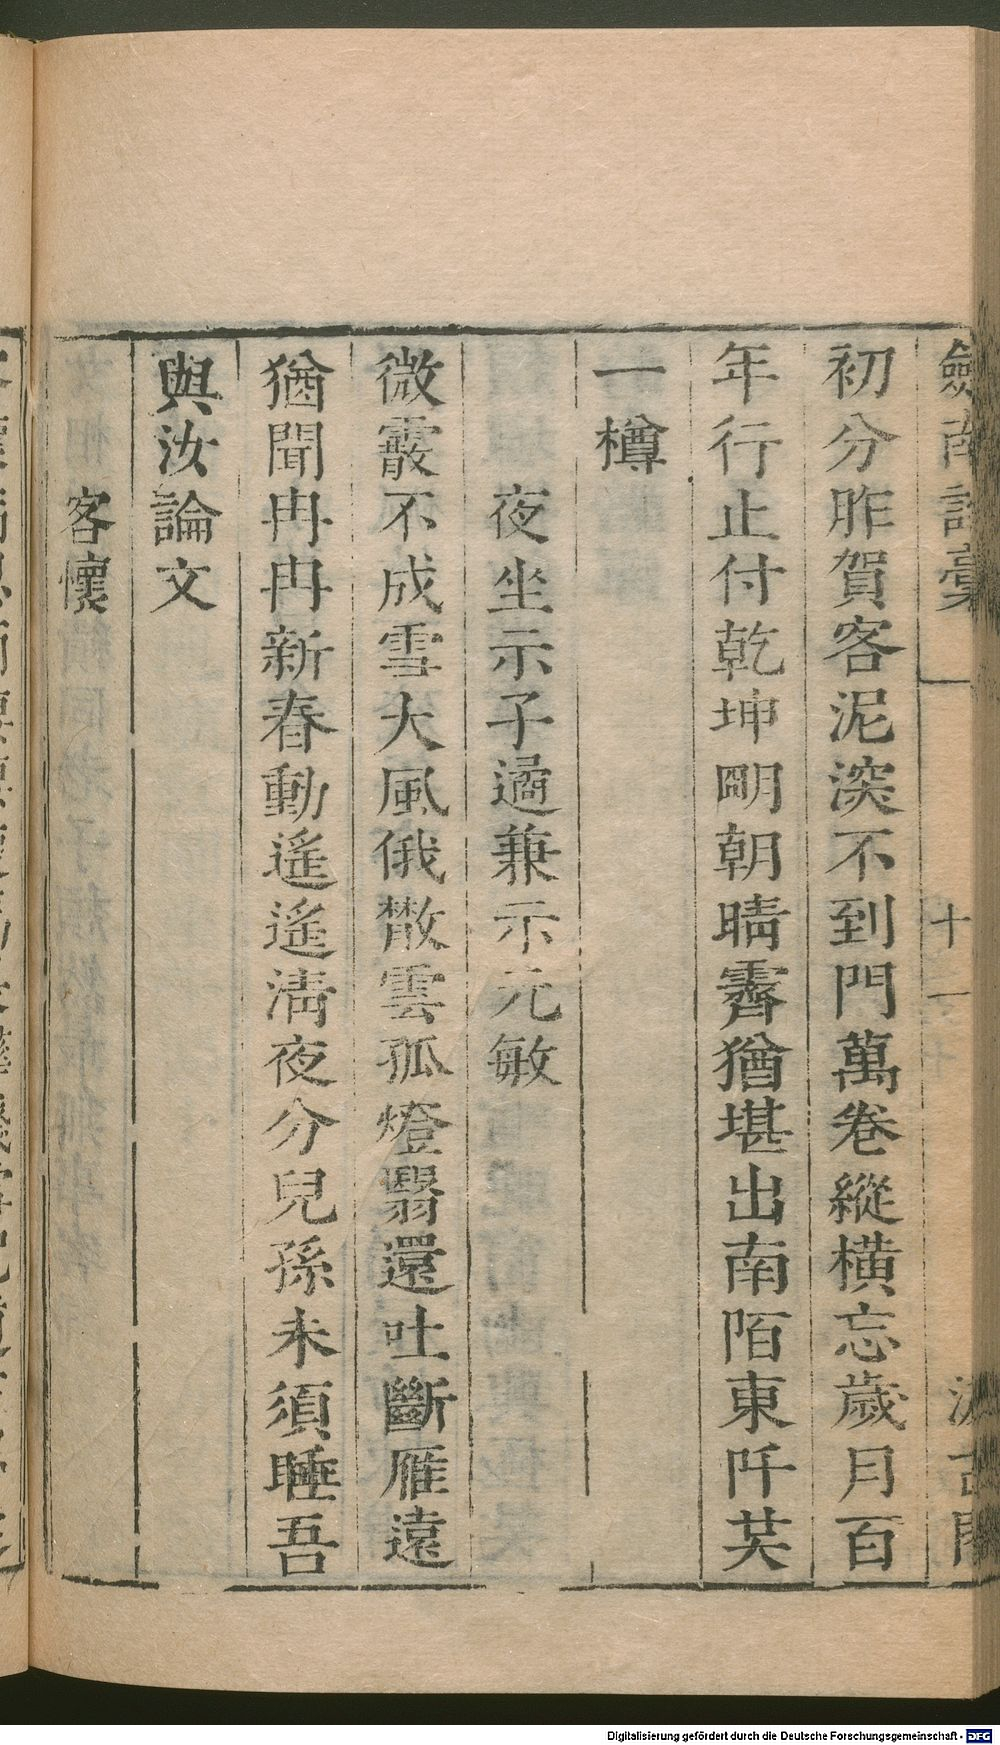 劔南詩稾
十一
汲古閣
初分昨賀客泥深不到門萬卷縱橫忘歲月百
年行止付乾坤明朝晴霽猶堪出南陌東阡共
一樽
夜坐示子遹兼示元敏
微霰不成雪大風俄散雲孤燈翳還吐斷雁遠
猶聞冉冉新春動遙遙清夜分兒孫未須睡吾
與汝論文
客懷
Digitalisierung gefördert durch die Deutsche Forschungsgemeinschaft - DFG